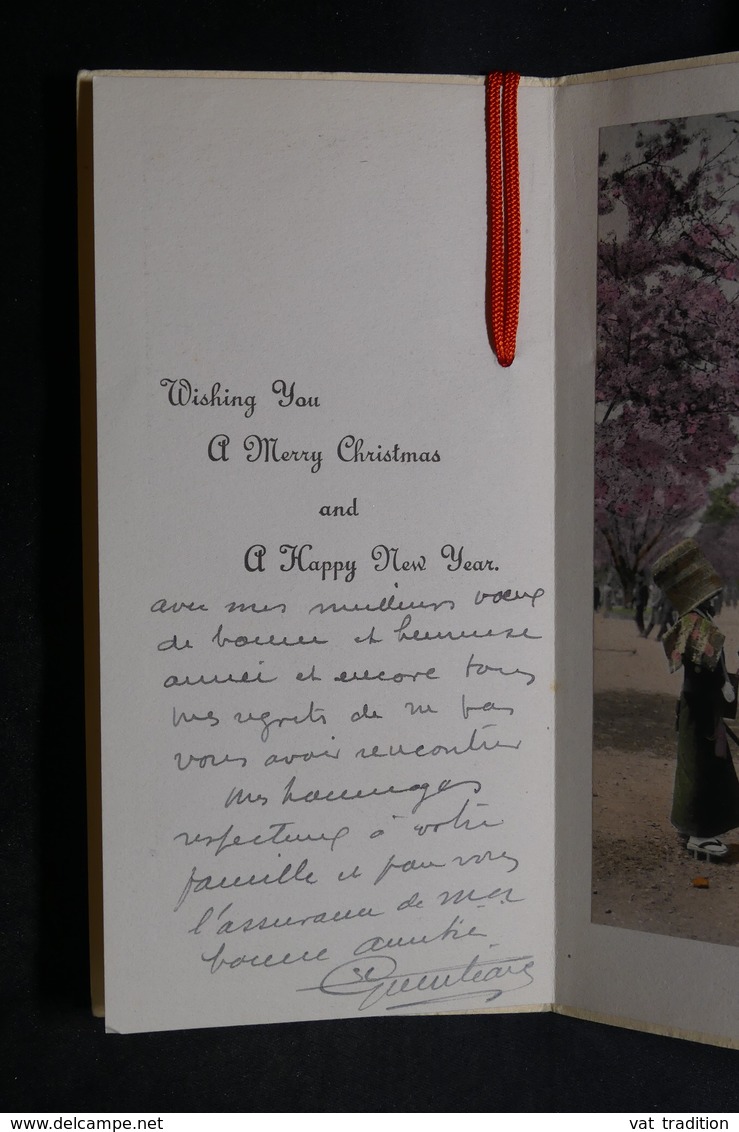 Wishing You
A Merry Christmas
and
A Happy New Year.
avec mes meilleurs vœux
de bonne et heureuse
année et encore tous
mes regrets de ne pas
vous avoir rencontré
Mes hommages
respectueux à votre
famille et pour vous
l'assurance de ma
bonne amitié
delcampe.net
vat tradition